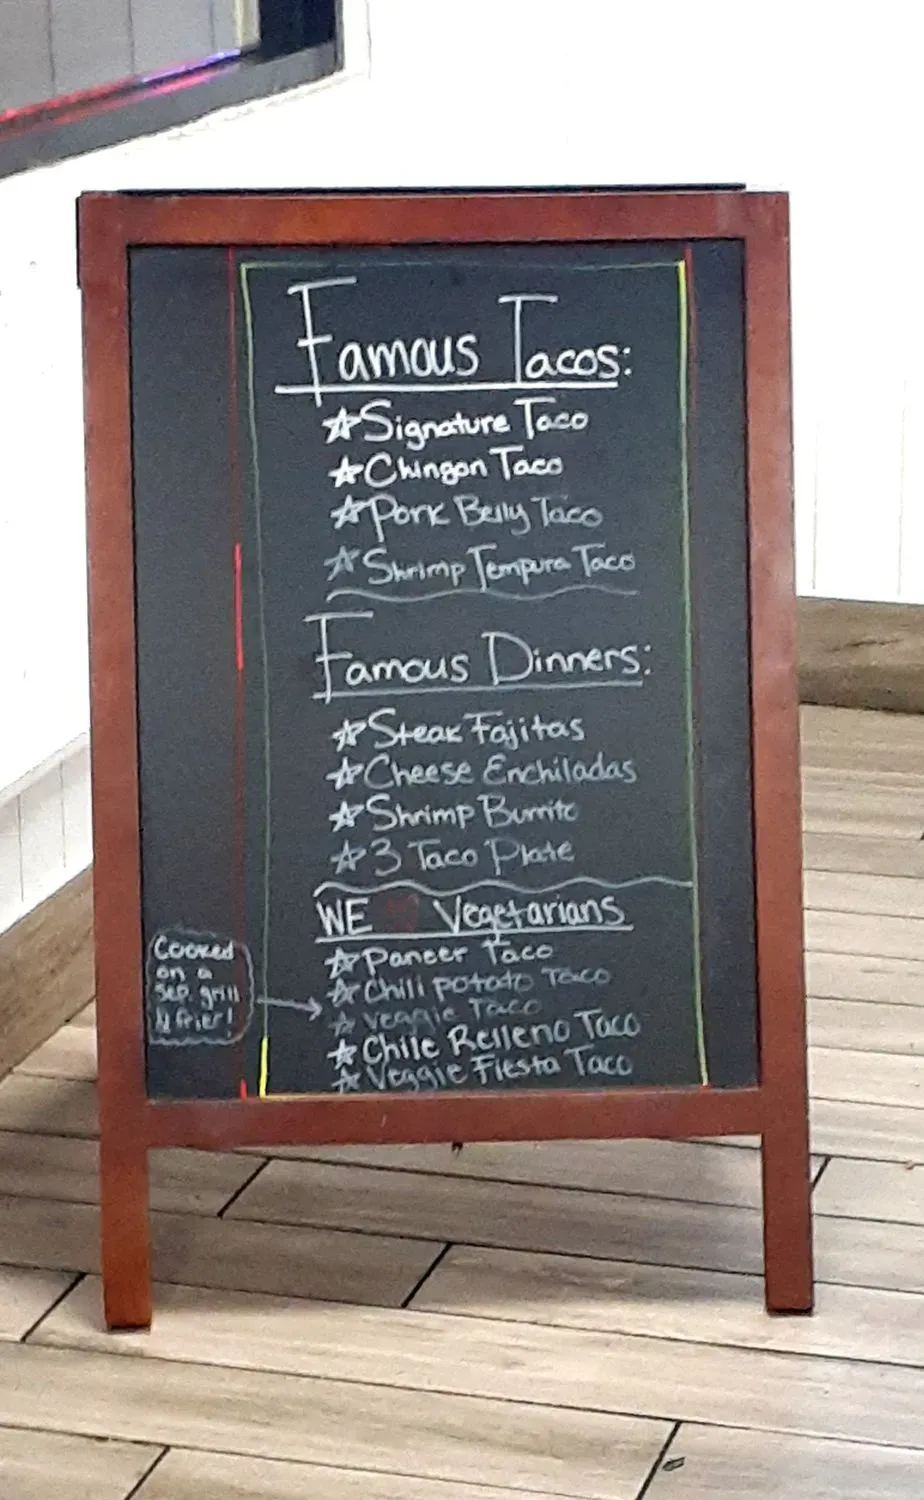 Famous Tacos:
☆Signature Taco
☆Chingon Taco
☆Pork Belly Taco
☆Shrimp Tempura Taco
Famous Dinners:
☆Steak Fajitas
☆Cheese Enchiladas
☆Shrimp Burrito
☆3 Taco Plate
WE ♥ Vegetarians
☆Paneer Taco
☆Chili potato Taco
☆veggie Taco
☆Chile Relleno Taco
☆Veggie Fiesta Taco
Cooked
on a
Sep. grill
& frier!